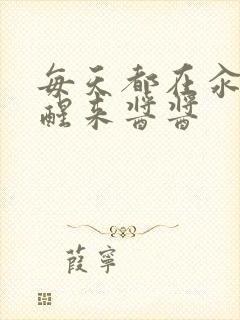 每天都在汆
醒来酱酱
葭寧